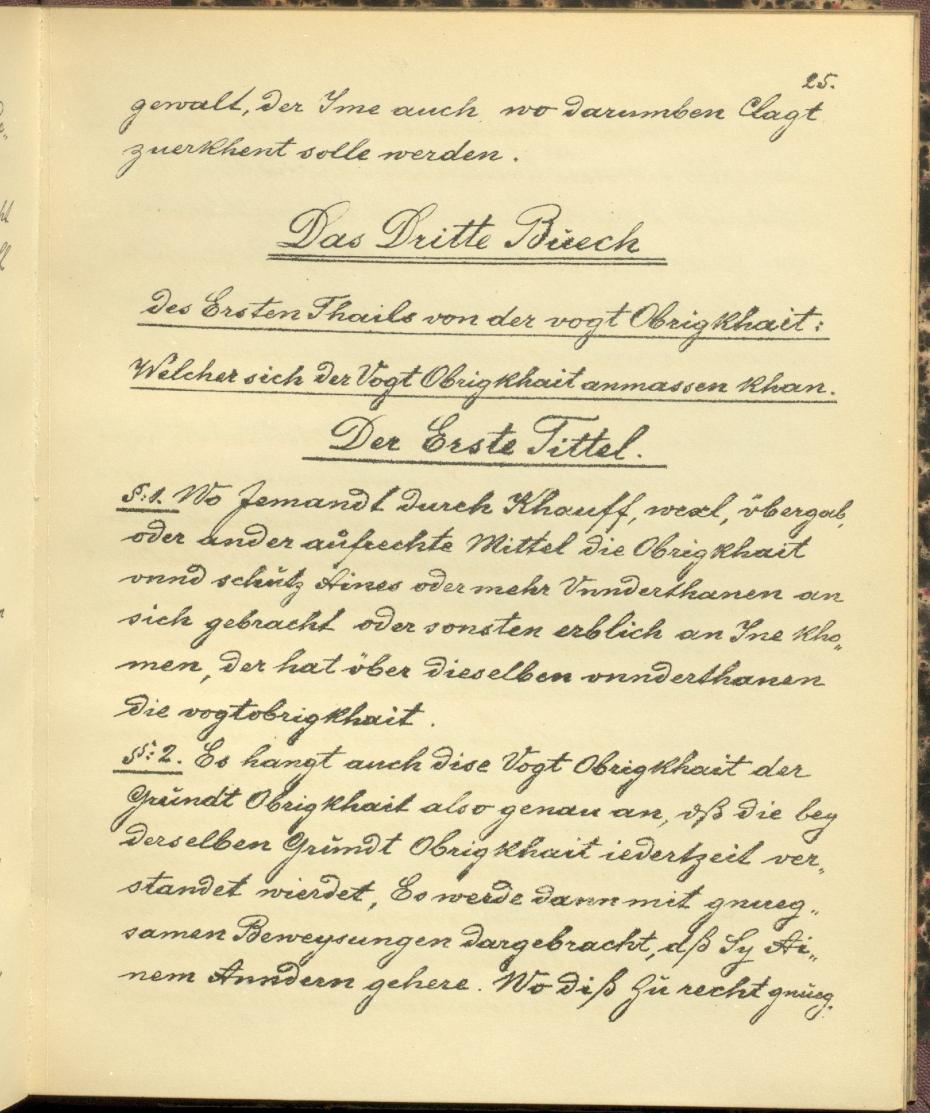 25.
gewalt, der Ime auch wo darumben Clagt
zuerkhent solle werden.
Das Dritte Büech
des Ersten Thails von der vogt Obrigkhait:
Welcher sich der Vogt Obrigkhait anmassen khan.
Der Erste Tittel.
§:1. Wo Jemandt durch Khauff, wexl, übergab,
oder ander aufrechte Mittel die Obrigkhait
vnnd schütz Aines oder mehr Vnnderthanen an
sich gebracht oder sonsten erblich an Ine kho„
men, der hat über dieselben vnnderthanen
die vogtobrigkhait.
§:2. Es hangt auch dise Vogt Obrigkhait der
Gründt Obrigkhait also genau an, dß die bey
derselben Gründt Obrigkhait iedertzeit ver„
standet wierdet, Es werde dann mit gnueg„
samen Beweysungen dargebracht, dß Sy Ai„
nem Anndern gehere. Wo diß zü recht gnüeg„